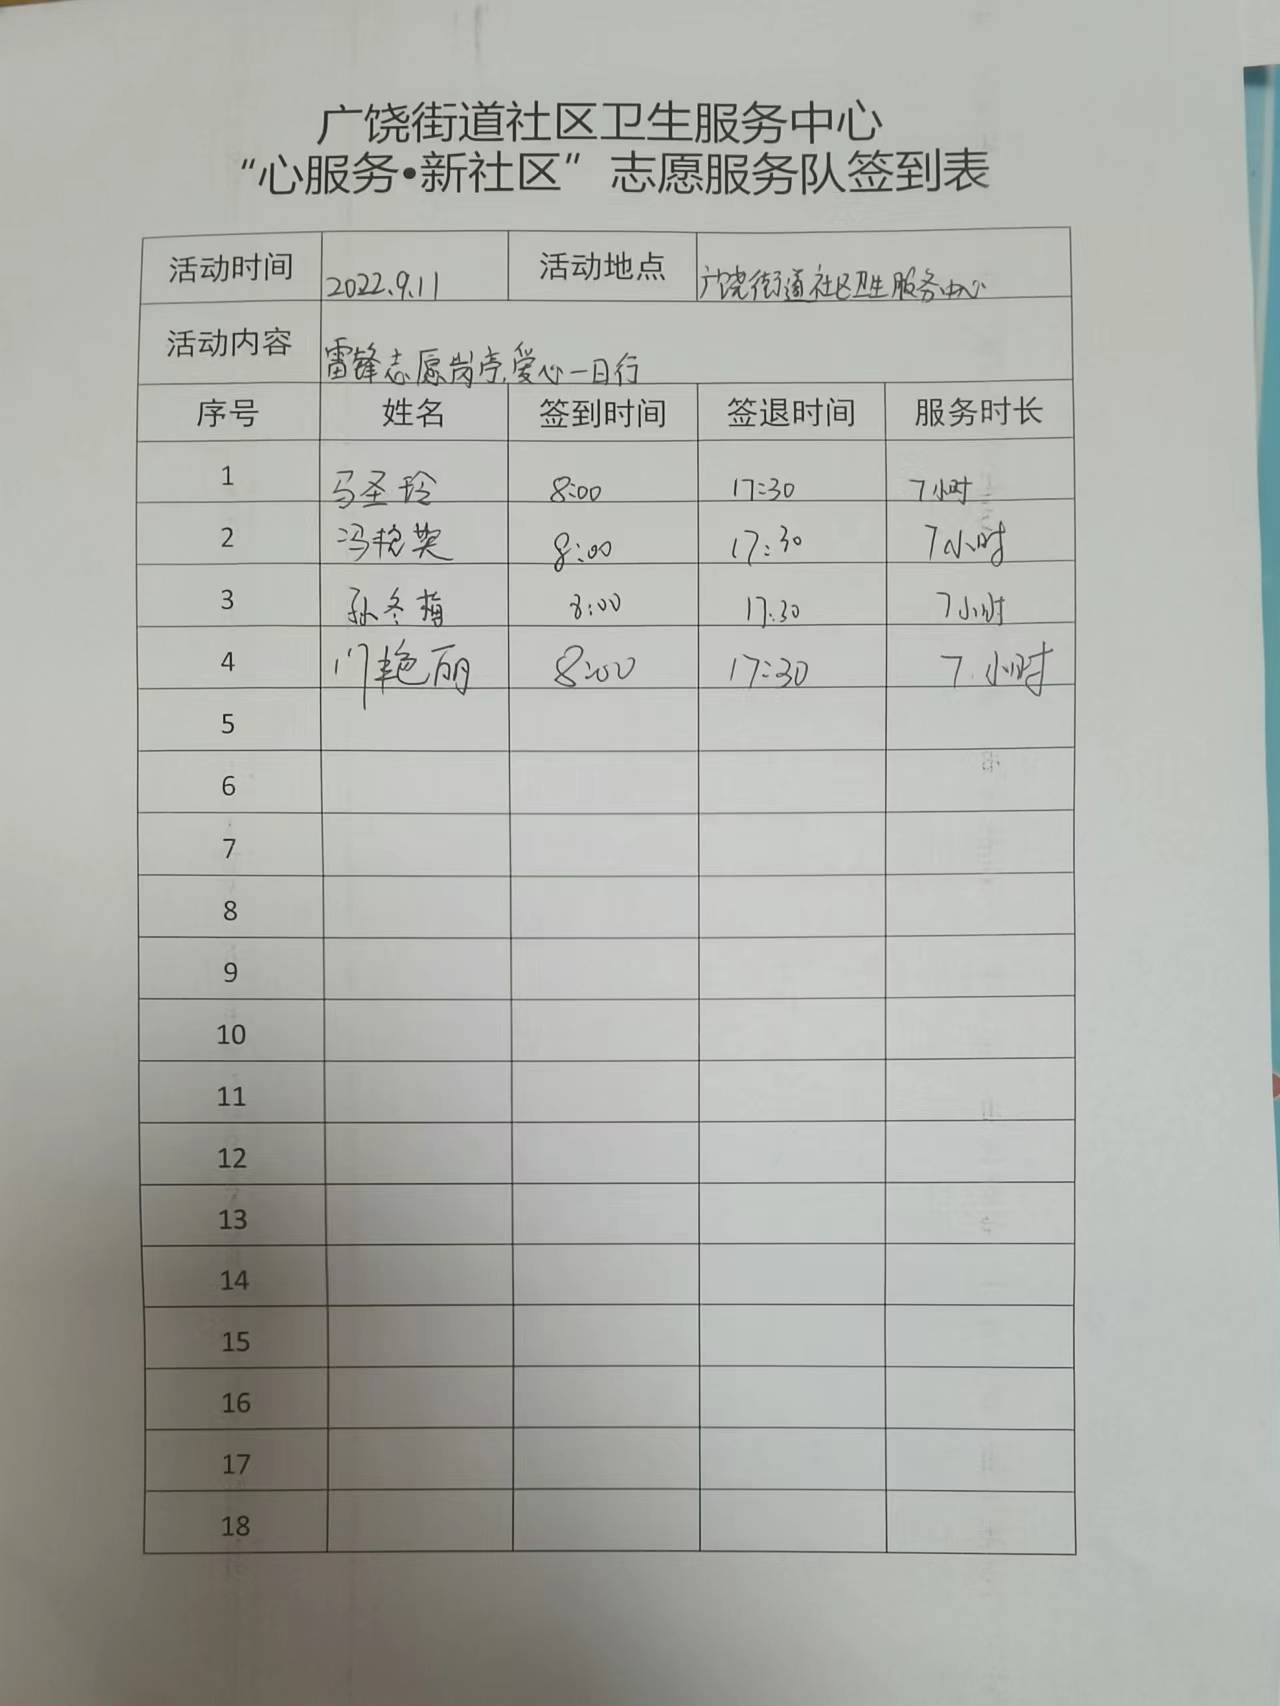 广饶街道社区卫生服务中心
“心服务•新社区”志愿服务队签到表
活动时间 2022.9.11 活动地点 广饶街道社区卫生服务中心
活动内容 雷锋志愿岗亭,爱心一日行
序号 姓名 签到时间 签退时间 服务时长
1 马圣玲 8:00 17:30 7小时
2 冯艳英 8:00 17:30 7小时
3 孙冬梅 8:00 17:30 7小时
4 门艳丽 8:00 17:30 7小时
5
6
7
8
9
10
11
12
13
14
15
16
17
18